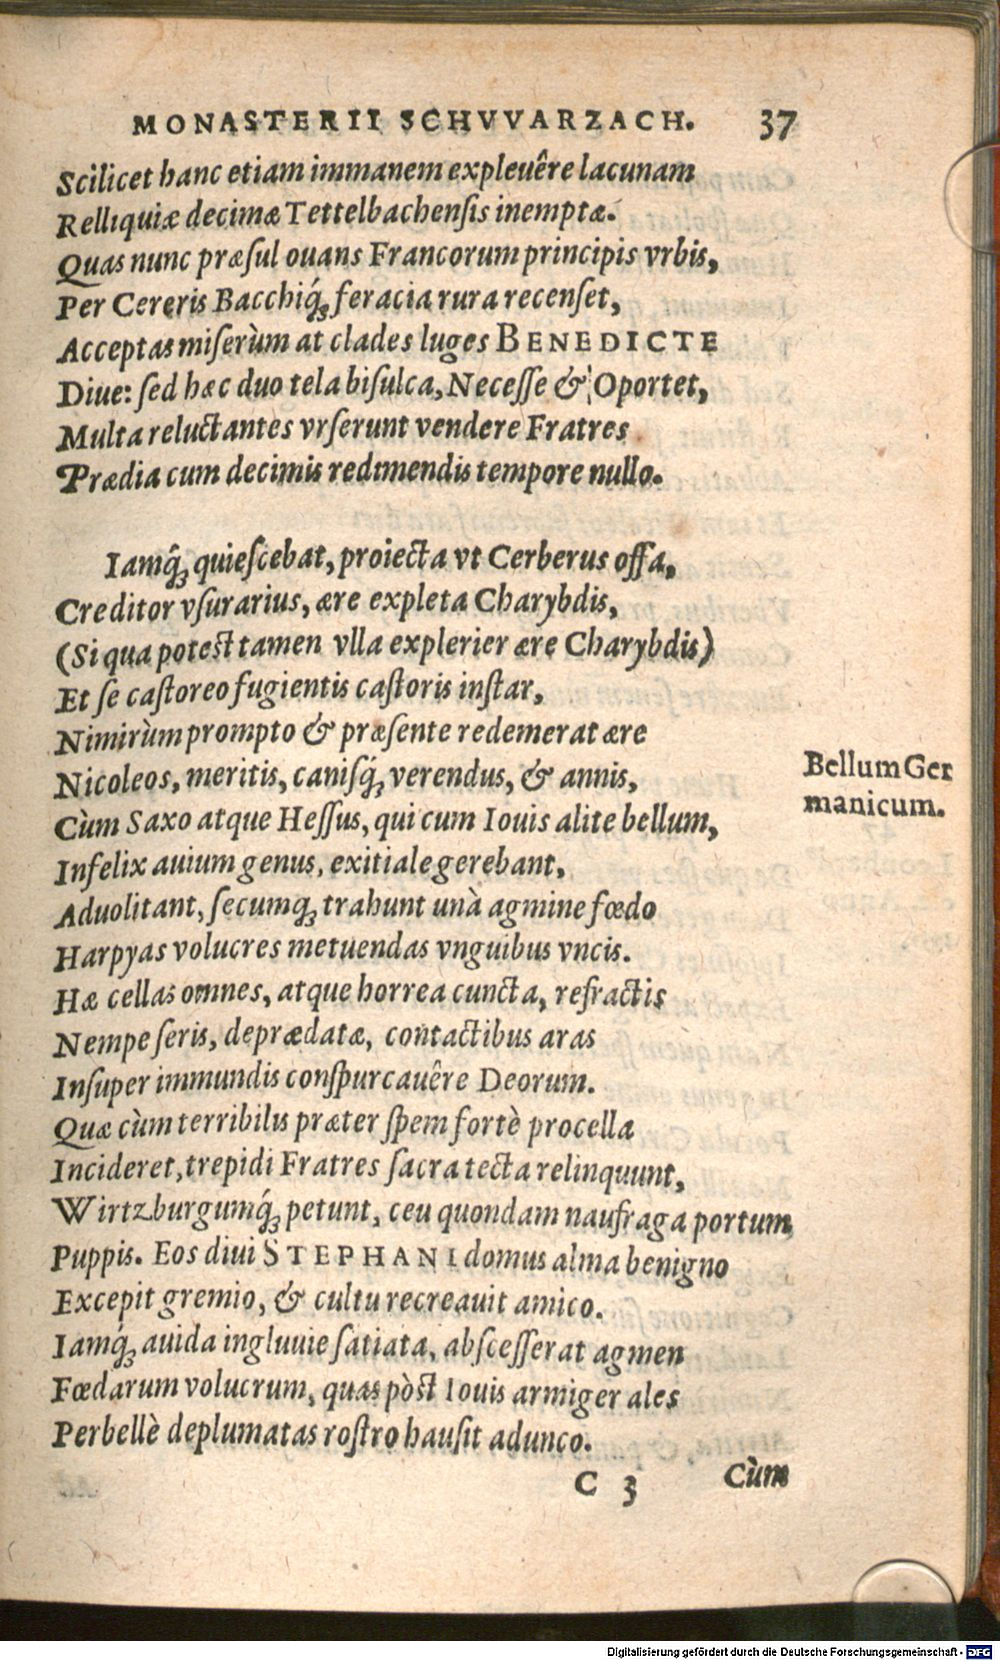 MONASTERII SCHVVARZACH. 37
Scilicet hanc etiam immanem expleuêre lacunam
Relliquiæ decimæ Tettelbachenſis inemptæ.
Quas nunc præſul ouans Francorum principis vrbis,
Per Cereris Bacchiq́ꝫ feracia rura recenſet,
Acceptas miſerùm at clades luges BENEDICTE
Diue: ſed hæc duo tela biſulca, Neceſſe & Oportet,
Multa reluctantes vrſerunt vendere Fratres
Prædia cum decimis redimendis tempore nullo.
Iamq́ꝫ quieſcebat, proiecta vt Cerberus offa,
Creditor vſurarius, ære expleta Charybdis,
(Si qua poteſt tamen vlla explerier ære Charybdis)
Et ſe caſtoreo fugientis caſtoris inſtar,
Nimirùm prompto & præſente redemerat ære
Nicoleos, meritis, caniſq́ꝫ verendus, & annis,
Cùm Saxo atque Heſſus, qui cum Iouis alite bellum,
Infelix auium genus, exitiale gerebant,
Aduolitant, ſecumqꝫ trahunt unà agmine fœdo
Harpyas volucres metuendas vnguibus vncis.
Hæ cellas omnes, atque horrea cuncta, refractis
Nempe ſeris, deprædatæ, contactibus aras
Inſuper immundis conſpurcauêre Deorum.
Quæ cùm terribilis præter ſpem fortè procella
Incideret, trepidi Fratres ſacra tecta relinquunt,
Wirtzburgumq́ꝫ petunt, ceu quondam naufraga portum
Puppis. Eos diui STEPHANI domus alma benigno
Excepit gremio, & cultu recreauit amico.
Iamq́ꝫ auida ingluuie ſatiata, abſceſſerat agmen
Fœdarum volucrum, quas pòſt Iouis armiger ales
Perbellè deplumatas roſtro hauſit adunco.
C 3 Cùm
Bellum Ger
manicum.
Digitalisierung gefördert durch die Deutsche Forschungsgemeinschaft - DFG